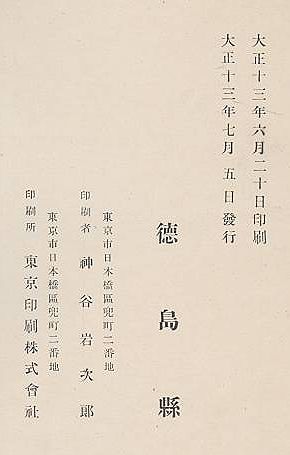 大正十三年六月二十日印刷
大正十三年七月五日發行
徳島縣
東京市日本橋區兜町二番地
印刷者 神谷岩次郎
東京市日本橋區兜町二番地
印刷所 東京印刷株式會社